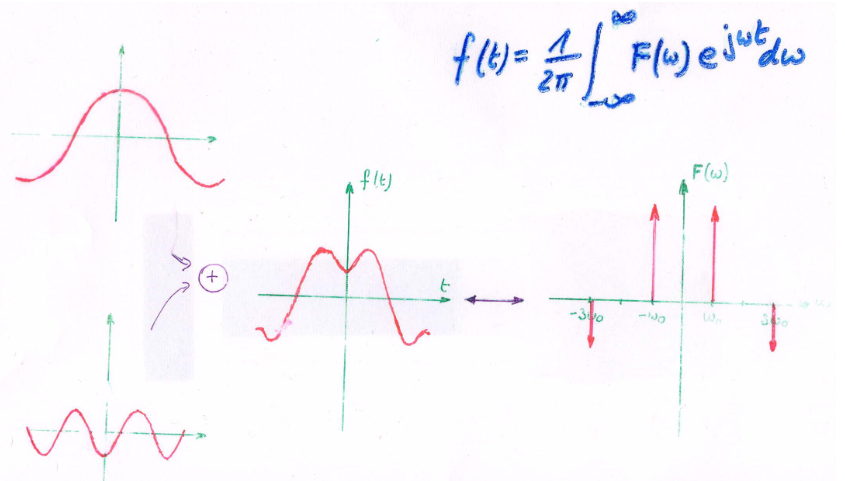 f(t) = 1/2π ∫_{-∞}^{∞} F(ω) e^{jωt} dω
f(t)
F(ω)
+
t
-3ω₀ -ω₀ ω₀ 3ω₀